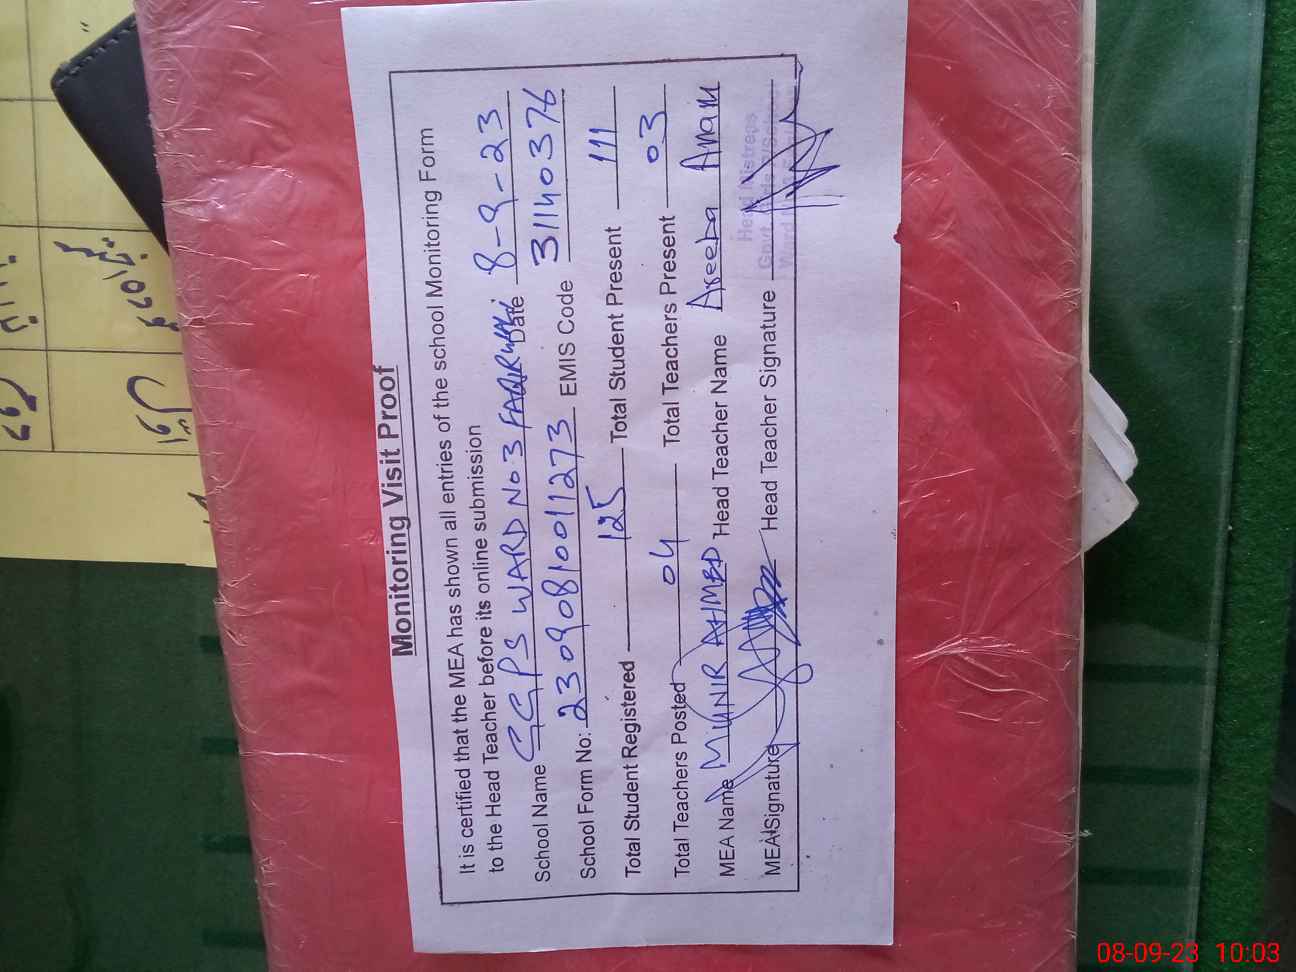 Monitoring Visit Proof
It is certified that the MEA has shown all entries of the school Monitoring Form
to the Head Teacher before its online submission
School Name GGPS WARD No 3 Date 8-9-23
School Form No: 2309081001273 EMIS Code 31140376
Total Student Registered 125 Total Student Present 111
Total Teachers Posted 04 Total Teachers Present 03
MEA Name MUNIR AHMED Head Teacher Name Areeba Anam
MEA Signature Head Teacher Signature
Head Mistress
Govt.
Ward
اول
08-09-23 10:03